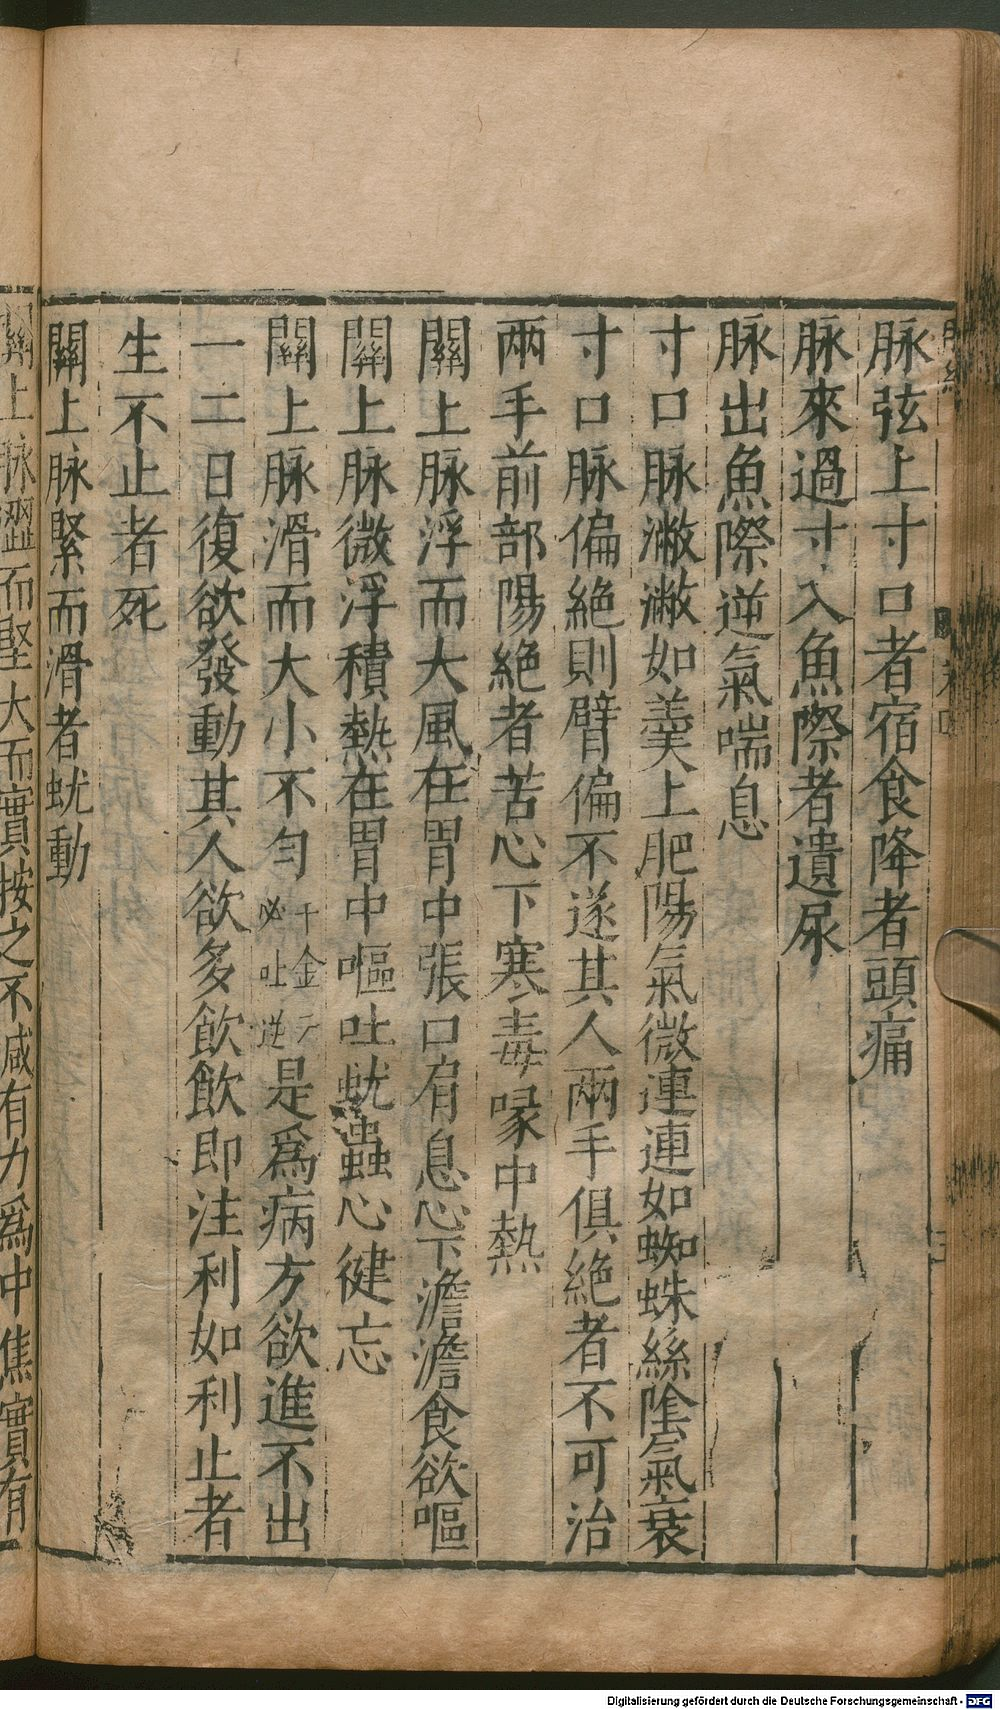 脉弦上寸口者宿食降者頭痛
脉來過寸入魚際者遺尿
脉出魚際逆氣喘息
寸口脉潎潎如羹上肥陽氣微連連如蜘蛛絲隂氣衰
寸口脉偏絕則臂偏不遂其人兩手俱絕者不可治
兩手前部陽絕者苦心下寒毒喙中熱
關上脉浮而大風在胃中張口肩息心下澹澹食欲嘔
關上脉微浮積熱在胃中嘔吐蚘蟲心健忘
關上脉滑而大小不勻千金云必吐逆是爲病方欲進不出
一二日復欲發動其人欲多飲飲即注利如利止者
生不止者死
關上脉緊而滑者蚘動
關上脉澀而堅大而實按之不減有力爲中焦實有
Digitalisierung gefördert durch die Deutsche Forschungsgemeinschaft - DFG